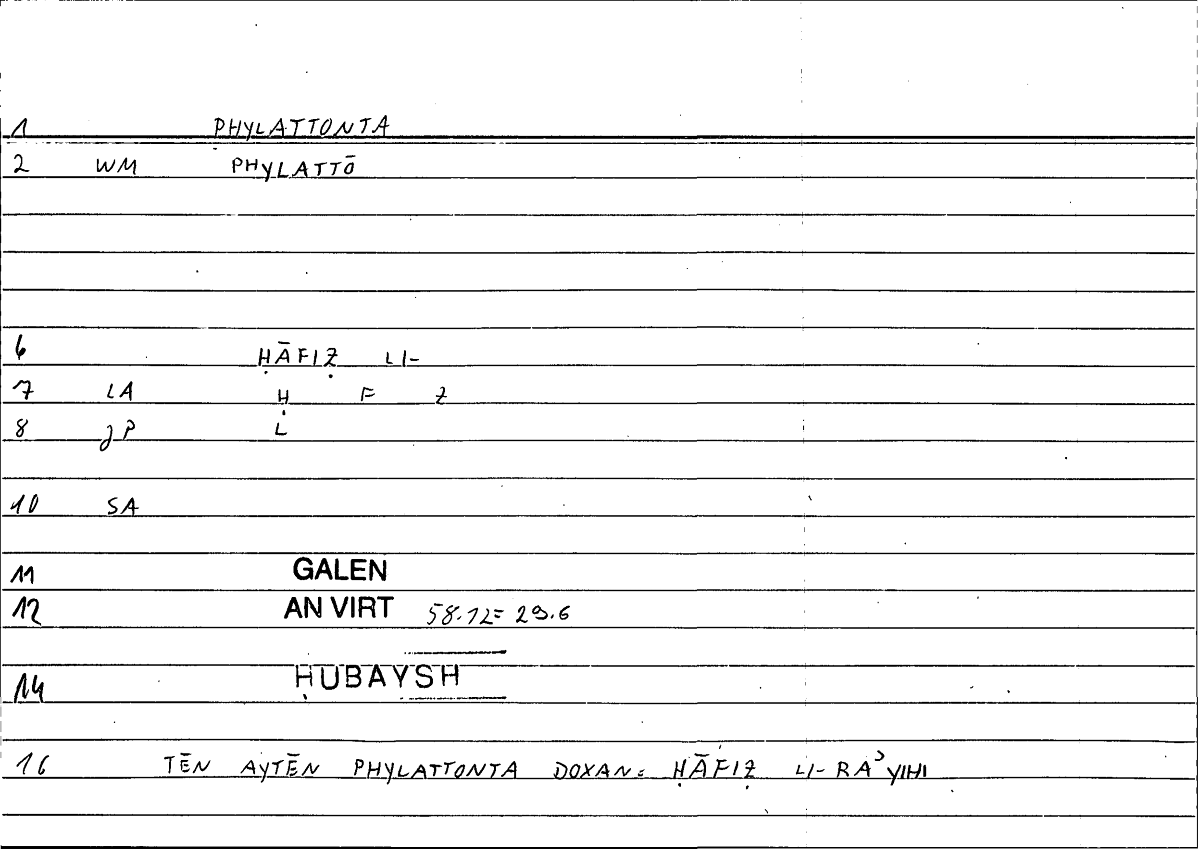 1 PHYLATTONTA
2 WM PHYLATTŌ
6 ḤĀFIẒ LI-
7 LA Ḥ F Ẓ
8 JP L
10 SA
11 GALEN
12 AN VIRT 58.12= 29.6
14 ḤUBAYSH
16 TĒN AYTĒN PHYLATTONTA DOXAN= ḤĀFIẒ LI-RAʾYIHI